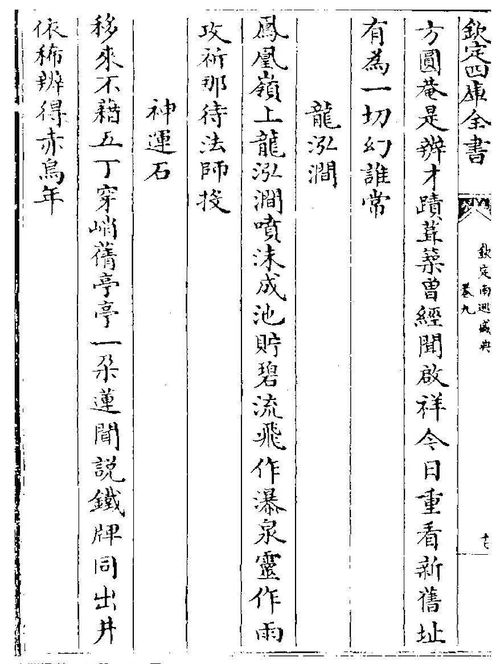 欽定四庫全書
欽定南巡盛典
卷九
方圓菴是辨才蹟葺築曾經聞啟祥今日重看新舊址
有為一切幻誰常
龍泓澗
鳳凰嶺上龍泓澗噴沫成池貯碧流飛作瀑泉靈作雨
攻祈那待法師投
神運石
移來不藉五丁穿峭蒨亭亭一朶蓮聞説鐵牌同出井
依稀辨得赤烏年